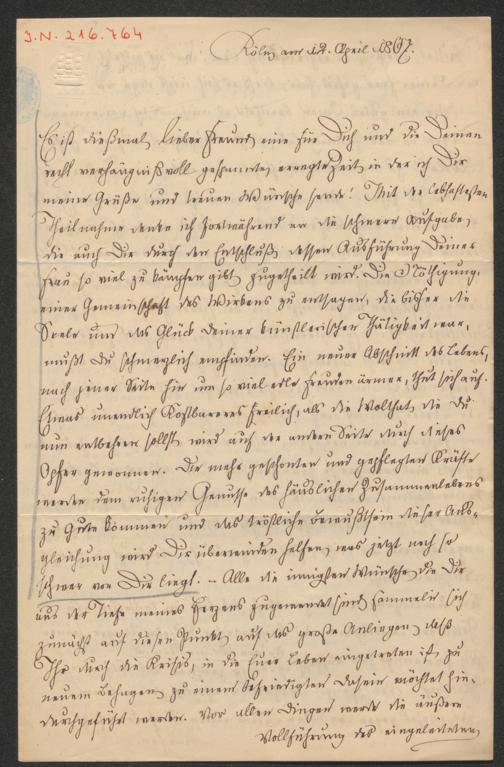 I.N. 216.764
Köln am 12. April 1867.
Es ist dießmal, lieber Freund, eine für Dich und die Deinen
recht verhängnißvoll gespannte, erregte Zeit, in der ich Dir
meine Grüße und treuen Wünsche sende! Mit der lebhaftesten
Theilnahme denke ich fortwährend an die schwere Aufgabe,
die auch Dir durch den Entschluß, dessen Ausführung Deiner
Frau so viel zu kämpfen gibt, zugetheilt wird. Die Nöthigung,
einer Gemeinschaft des Wirkens zu entsagen, die bisher die
Seele und das Glück Deiner künstlerischen Thätigkeit war,
mußt Du schmerzlich empfinden. Ein neuer Abschnitt des Lebens,
nach jener Seite hin um so viel edle Freuden ärmer, thut sich auf.
Etwas unendlich Kostbareres freilich, als die Wolthat, die Du
nun entbehren sollst, wird auf der andern Seite durch dieses
Opfer gewonnen. Die mehr geschonten und gepflegten Kräfte
werden dem ruhigen Genusse des häuslichen Zusammenlebens
zu Gute kommen und das tröstliche Bewußtsein dieser Aus-
gleichung wird Dir überwinden helfen, was jetzt noch so
schwer vor Dir liegt. – Alle die innigsten Wünsche, die Dir
aus der Tiefe meines Herzens zugewendet sind, sammeln sich
zunächst auf diesen Punkt, auf das große Anliegen, daß
Ihr durch die Krisis, in die Euer Leben eingetreten ist, zu
neuem Behagen, zu einem befriedigten Dasein möchtet hin-
durchgeführt werden. Vor allen Dingen werde die äußere
Vollführung des eingeleiteten